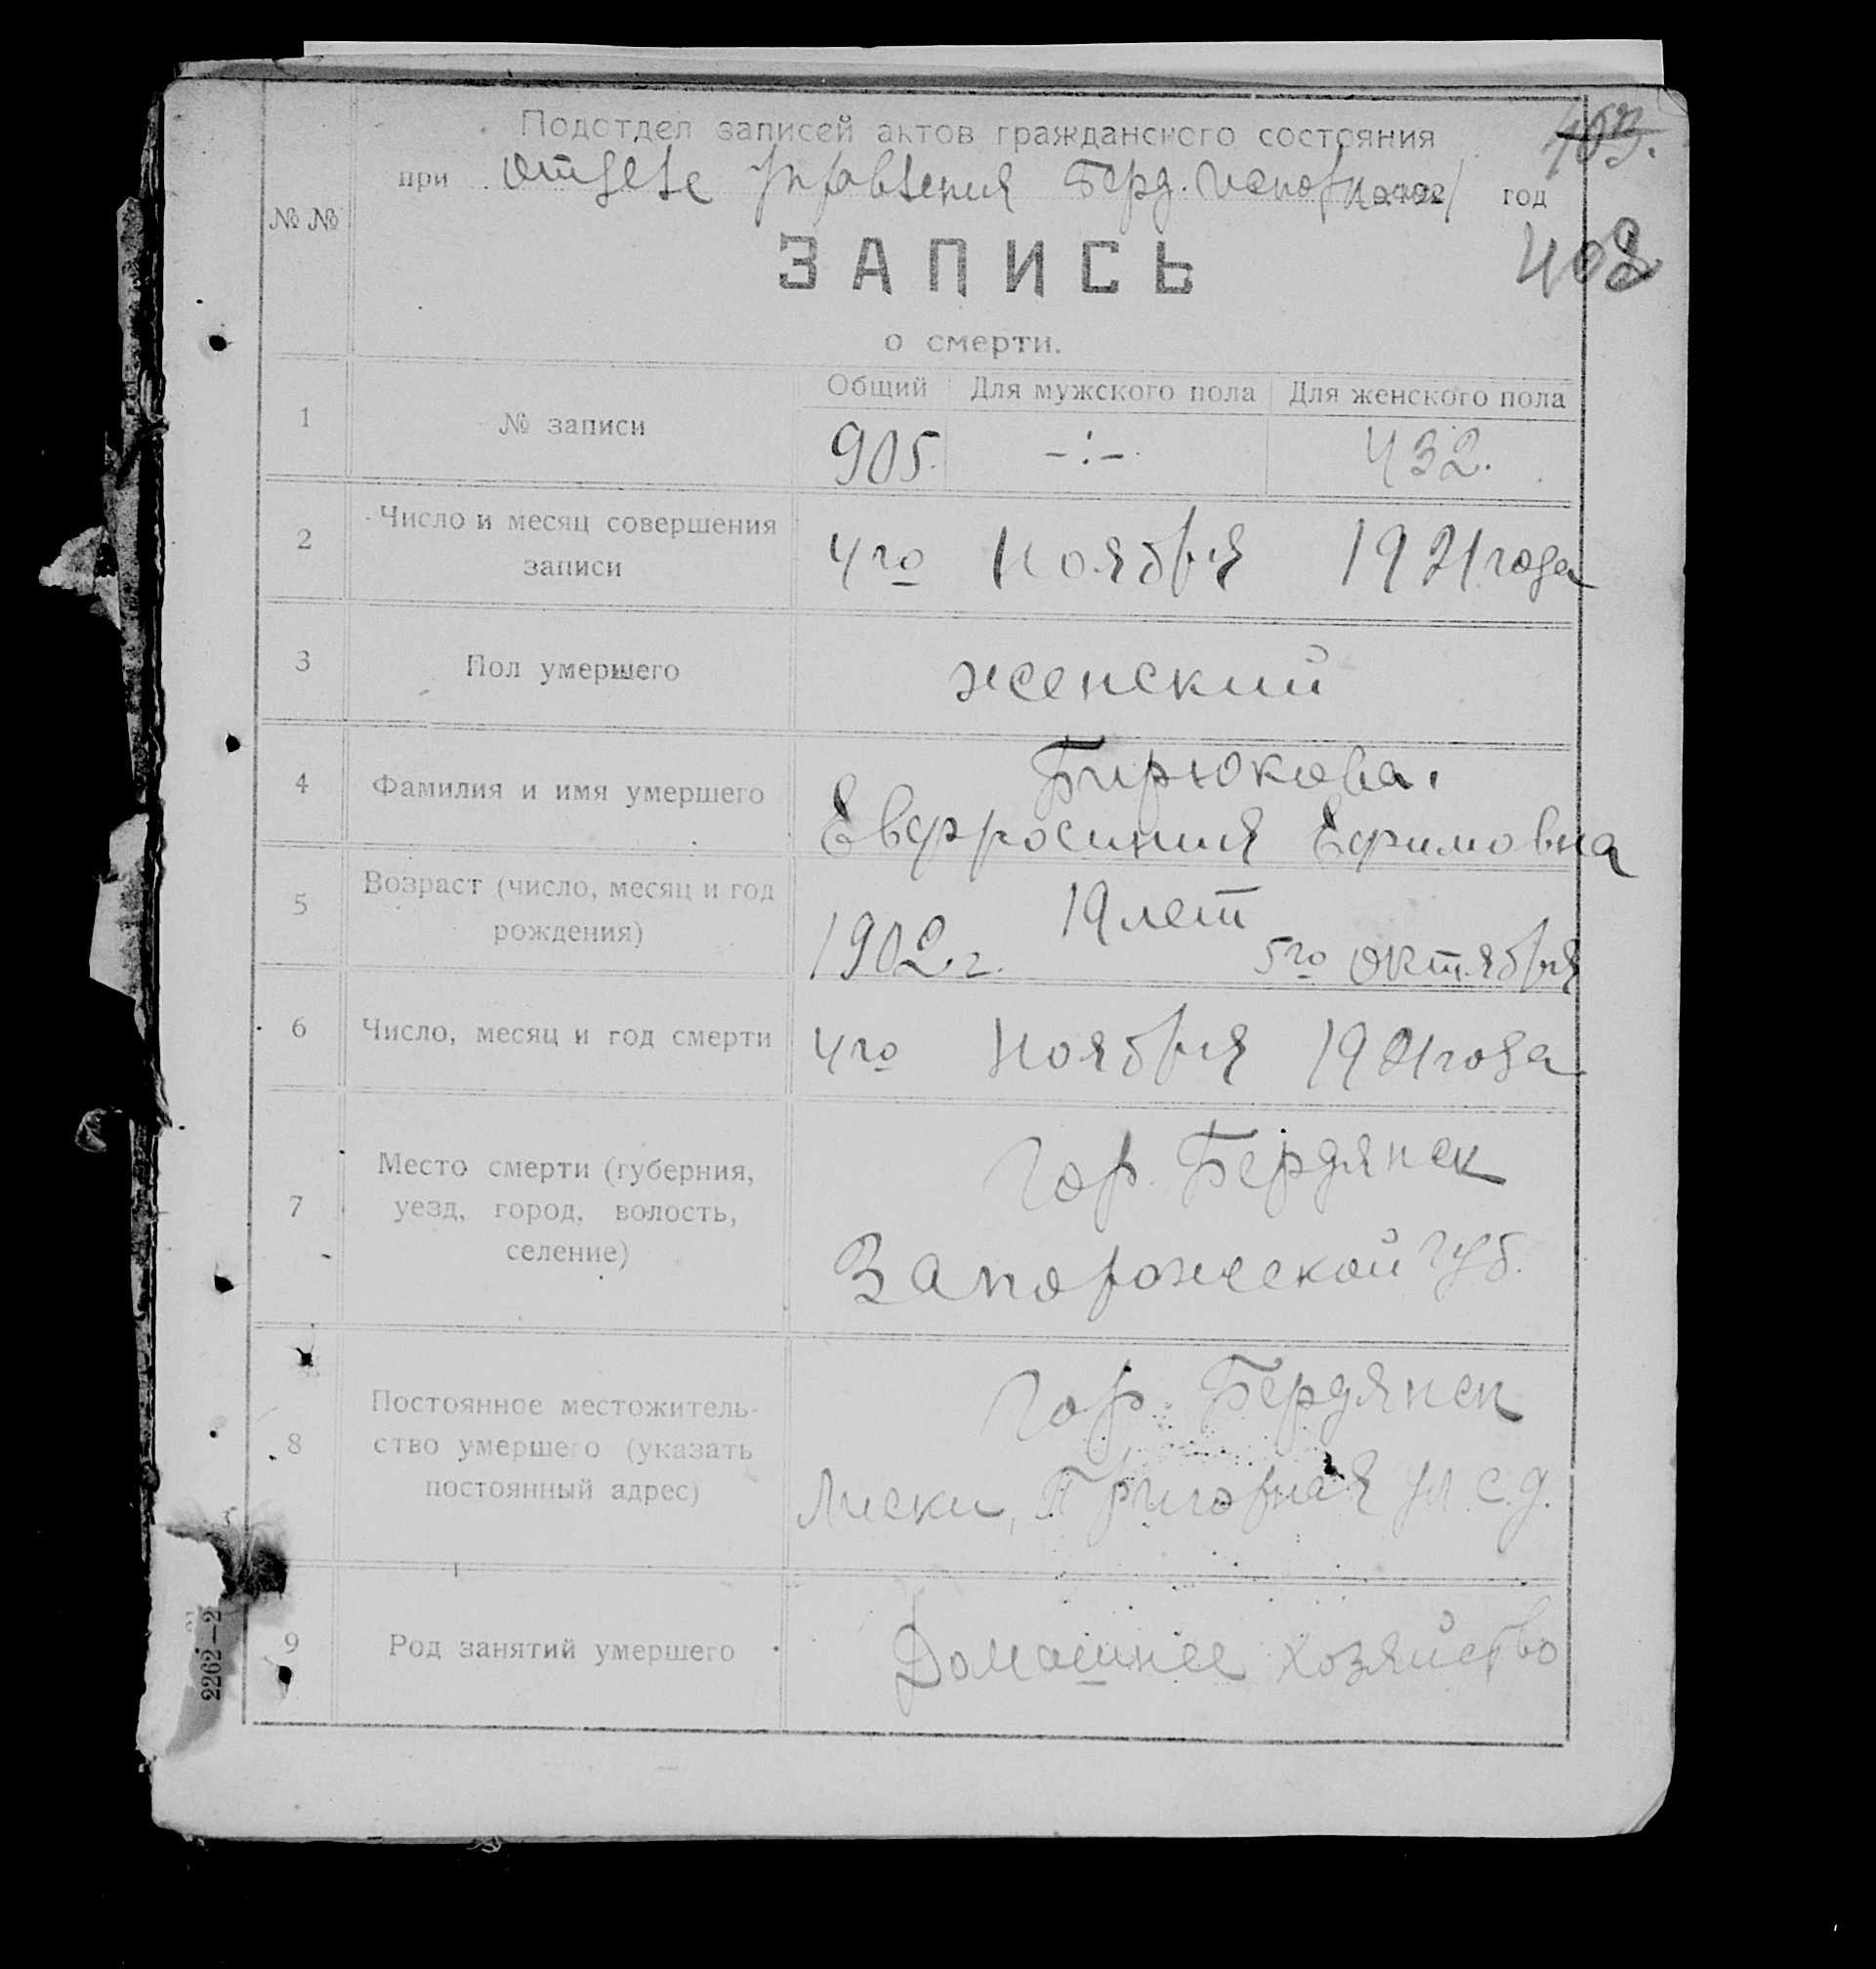 Подотдел записей актов гражданского состояния
403.
при отделе Управления Берд. год
402
№ №
ЗАПИСЬ
о смерти.
1 № записи Общий Для мужского пола Для женского пола
905. -:-. 432.
2 Число и месяц совершения
записи
4го Ноября 1921 года
3 Пол умершего женский
4 Фамилия и имя умершего
Бирюкова.
Евфросиния Ефимовна
5 Возраст (число, месяц и год
рождения)
19 лет
1902 г. 5го октября
6 Число, месяц и год смерти 4го Ноября 1921 года
7 Место смерти (губерния,
уезд, город, волость,
селение)
Гор. Бердянск
Запорожской губ.
8 Постоянное местожитель-
ство умершего (указать
постоянный адрес)
Гор. Бердянск
Лиски, ул с.д.
9 Род занятий умершего Домашнее хозяйство
2262—2